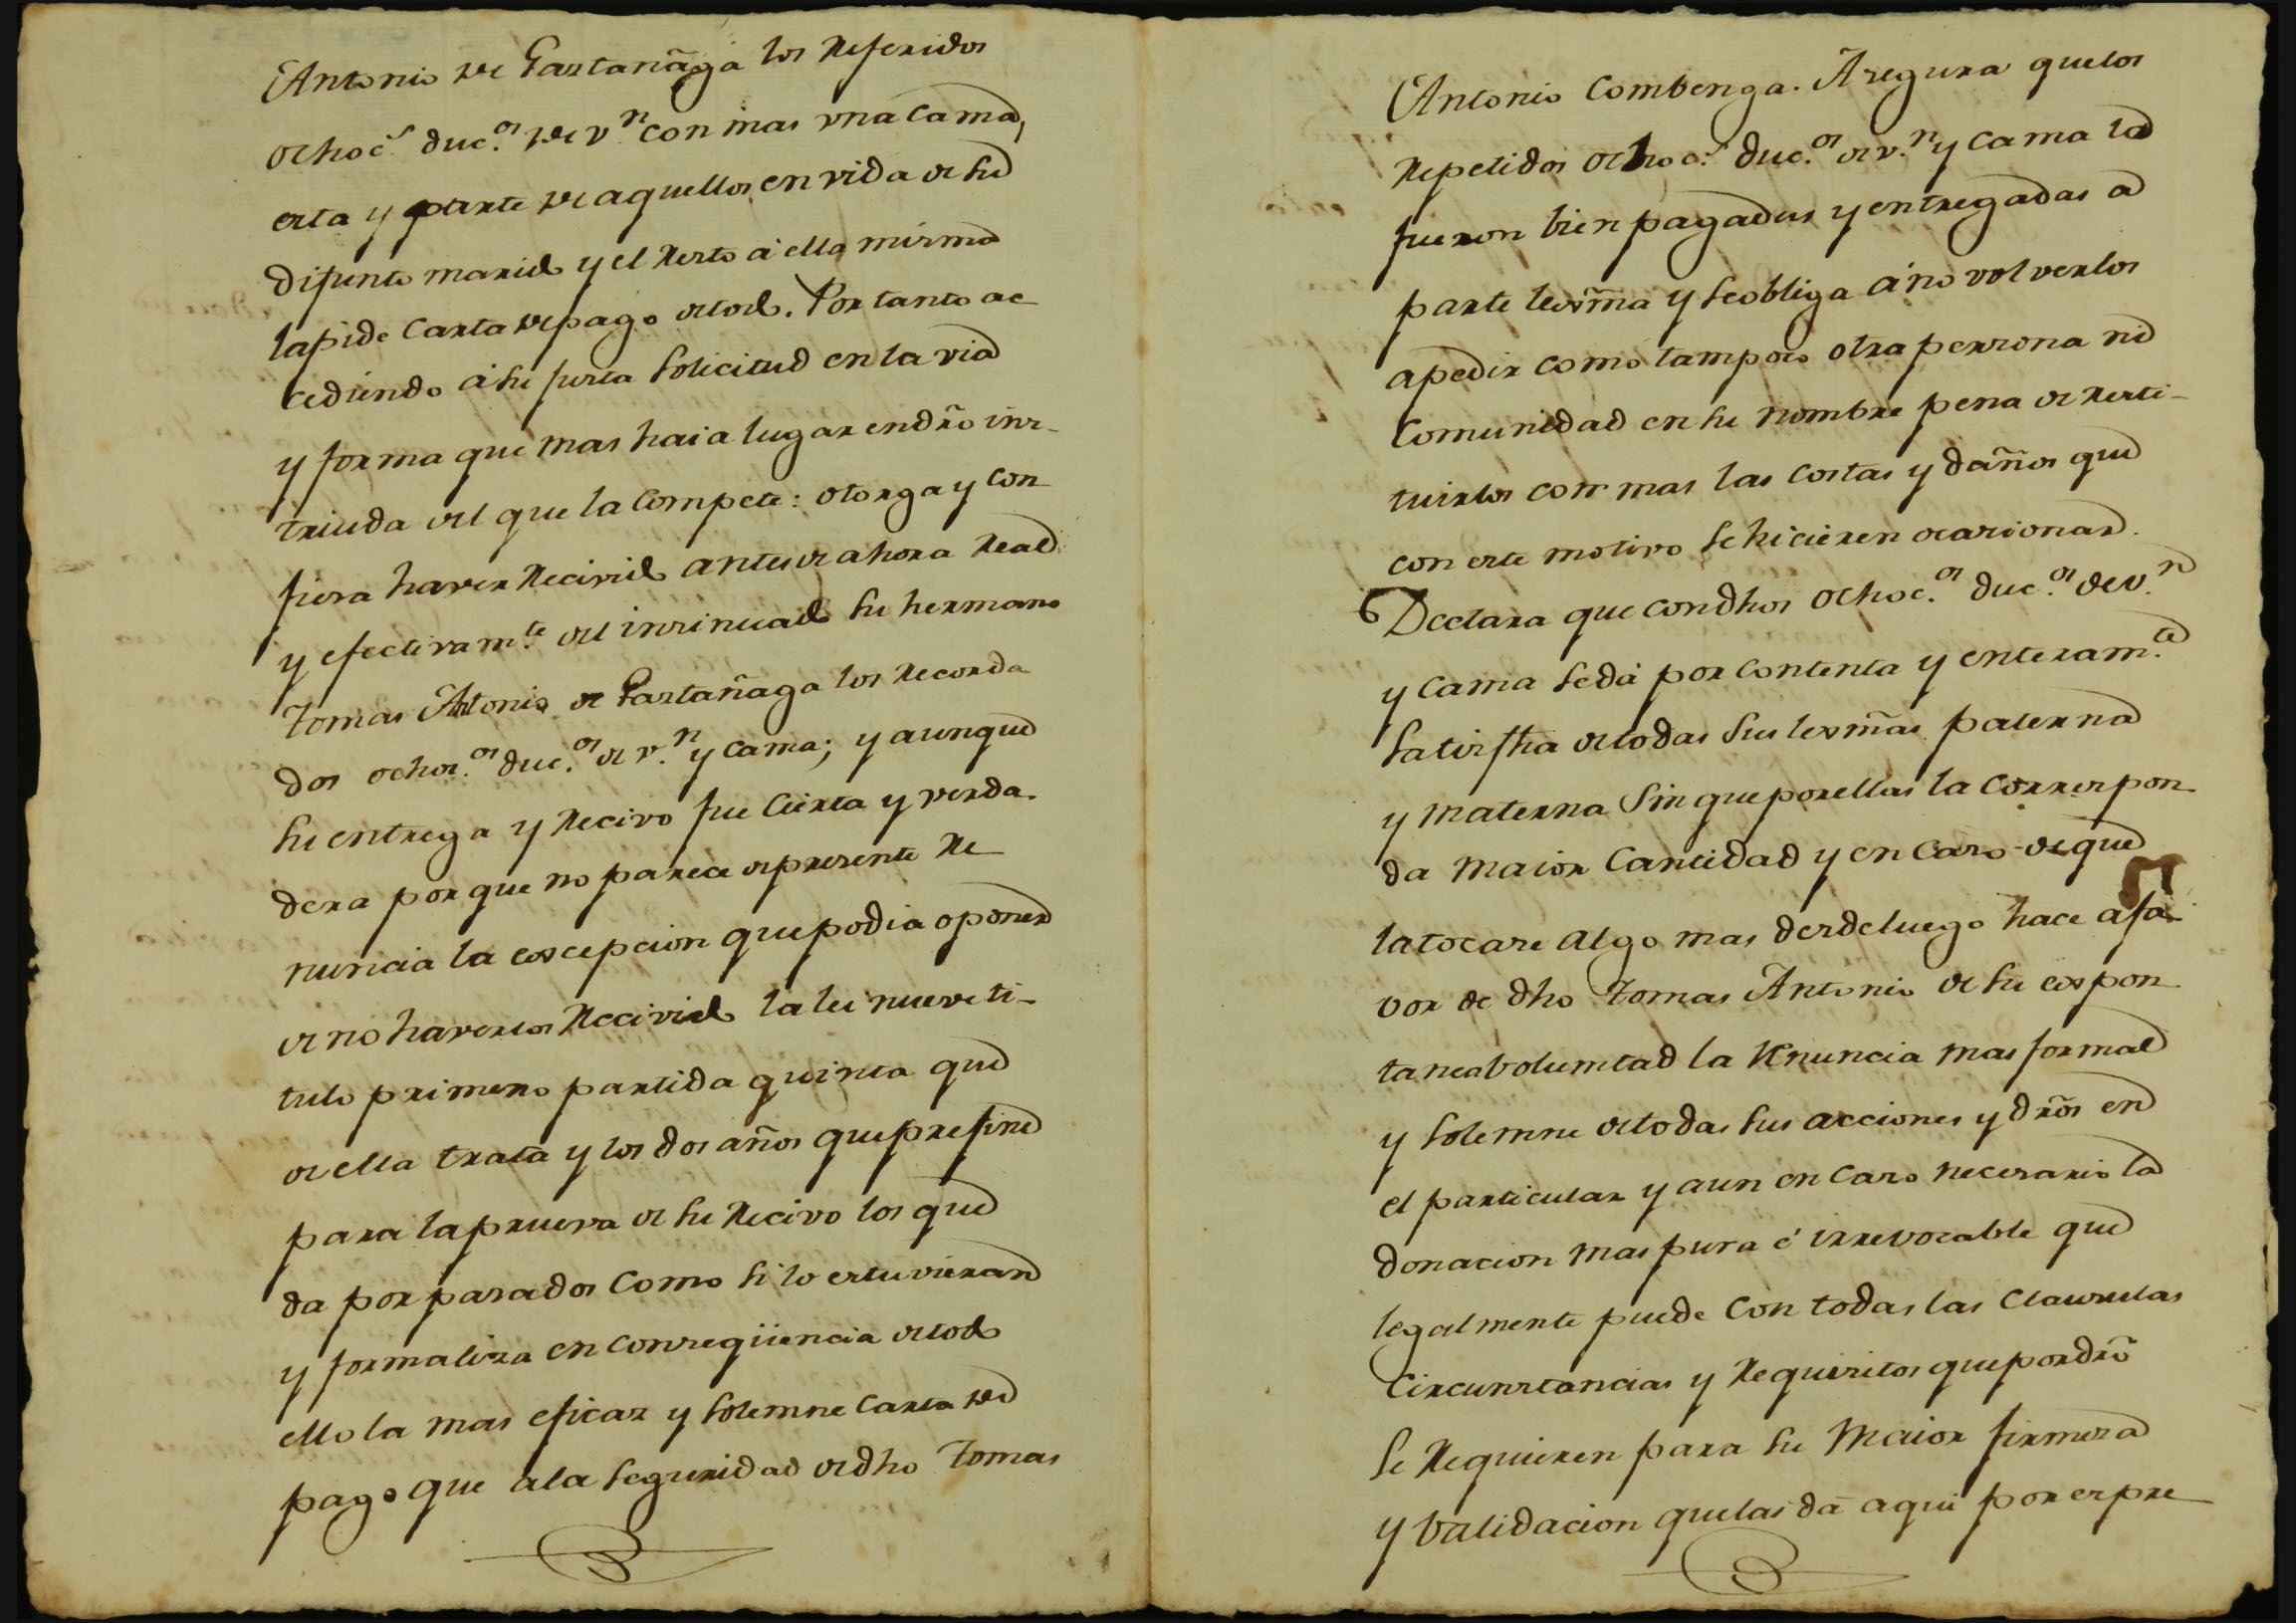 Antonio de Gaztañaga los Referidos
ochoc.s duc.os de v.n con mas vna cama,
esta y parte de aquellos en vida de su
difunto marido y el Resto á ella misma
la pide Carta de pago de todo. Por tanto ac
cediendo á su justa solicitud en la via
y forma que mas haia lugar en dro ins-
truida del que la Compete: otorga y con
fiesa haver Recivido antes de ahora Real
y efectivam.te del insinuado su hermano
Tomas Antonio de Gaztañaga los Recorda
dos ochoc.os duc.os de v.n y cama; y aunque
su entrega y Recivo fue cierta y verda-
dera por que no parece de presente Re
nuncia la excepcion que podia oponer
de no haverlos Recivido la lei nueve ti-
tulo primero partida quinta que
de ella trata y los dos años que prefine
para la prueva de su Recivo los que
da por pasados Como si lo estuvieran
y formaliza en Conseqüencia de todo
ello la mas eficaz y solemne Carta de
pago que a la seguridad de dho Tomas
Antonio Combenga. Asegura que los
Repetidos ochoc.s duc.os de v.n y cama la
fueron bien pagados y entregadas a
parte lexma y se obliga á no volverlos
a pedir como tampoco otra persona ni
Comunidad en su nombre pena de Resti-
tuirlos con mas las costas y daños que
con este motivo se hicieren ocasionar.
Declara que con dhos ochoc.os duc.os de v.n
y cama se dá por contenta y enteram.te
satisfha de todas sus lexmas paterna
y materna sin que por ellas la correspon
da maior Cantidad y en caso de que
la tocare algo mas desde luego hace a fa-
vor de dho Tomas Antonio de su expon
tanea bolumtad la Renuncia mas formal
y solemne de todas sus acciones y dros en
el particular y aun en caso necesario la
donacion mas pura é irrevocable que
legalmente puede con todas las clausulas
Circunstancias y Requisitos que por dro
se Requieren para su maior firmeza
y validacion que las da aqui por expre